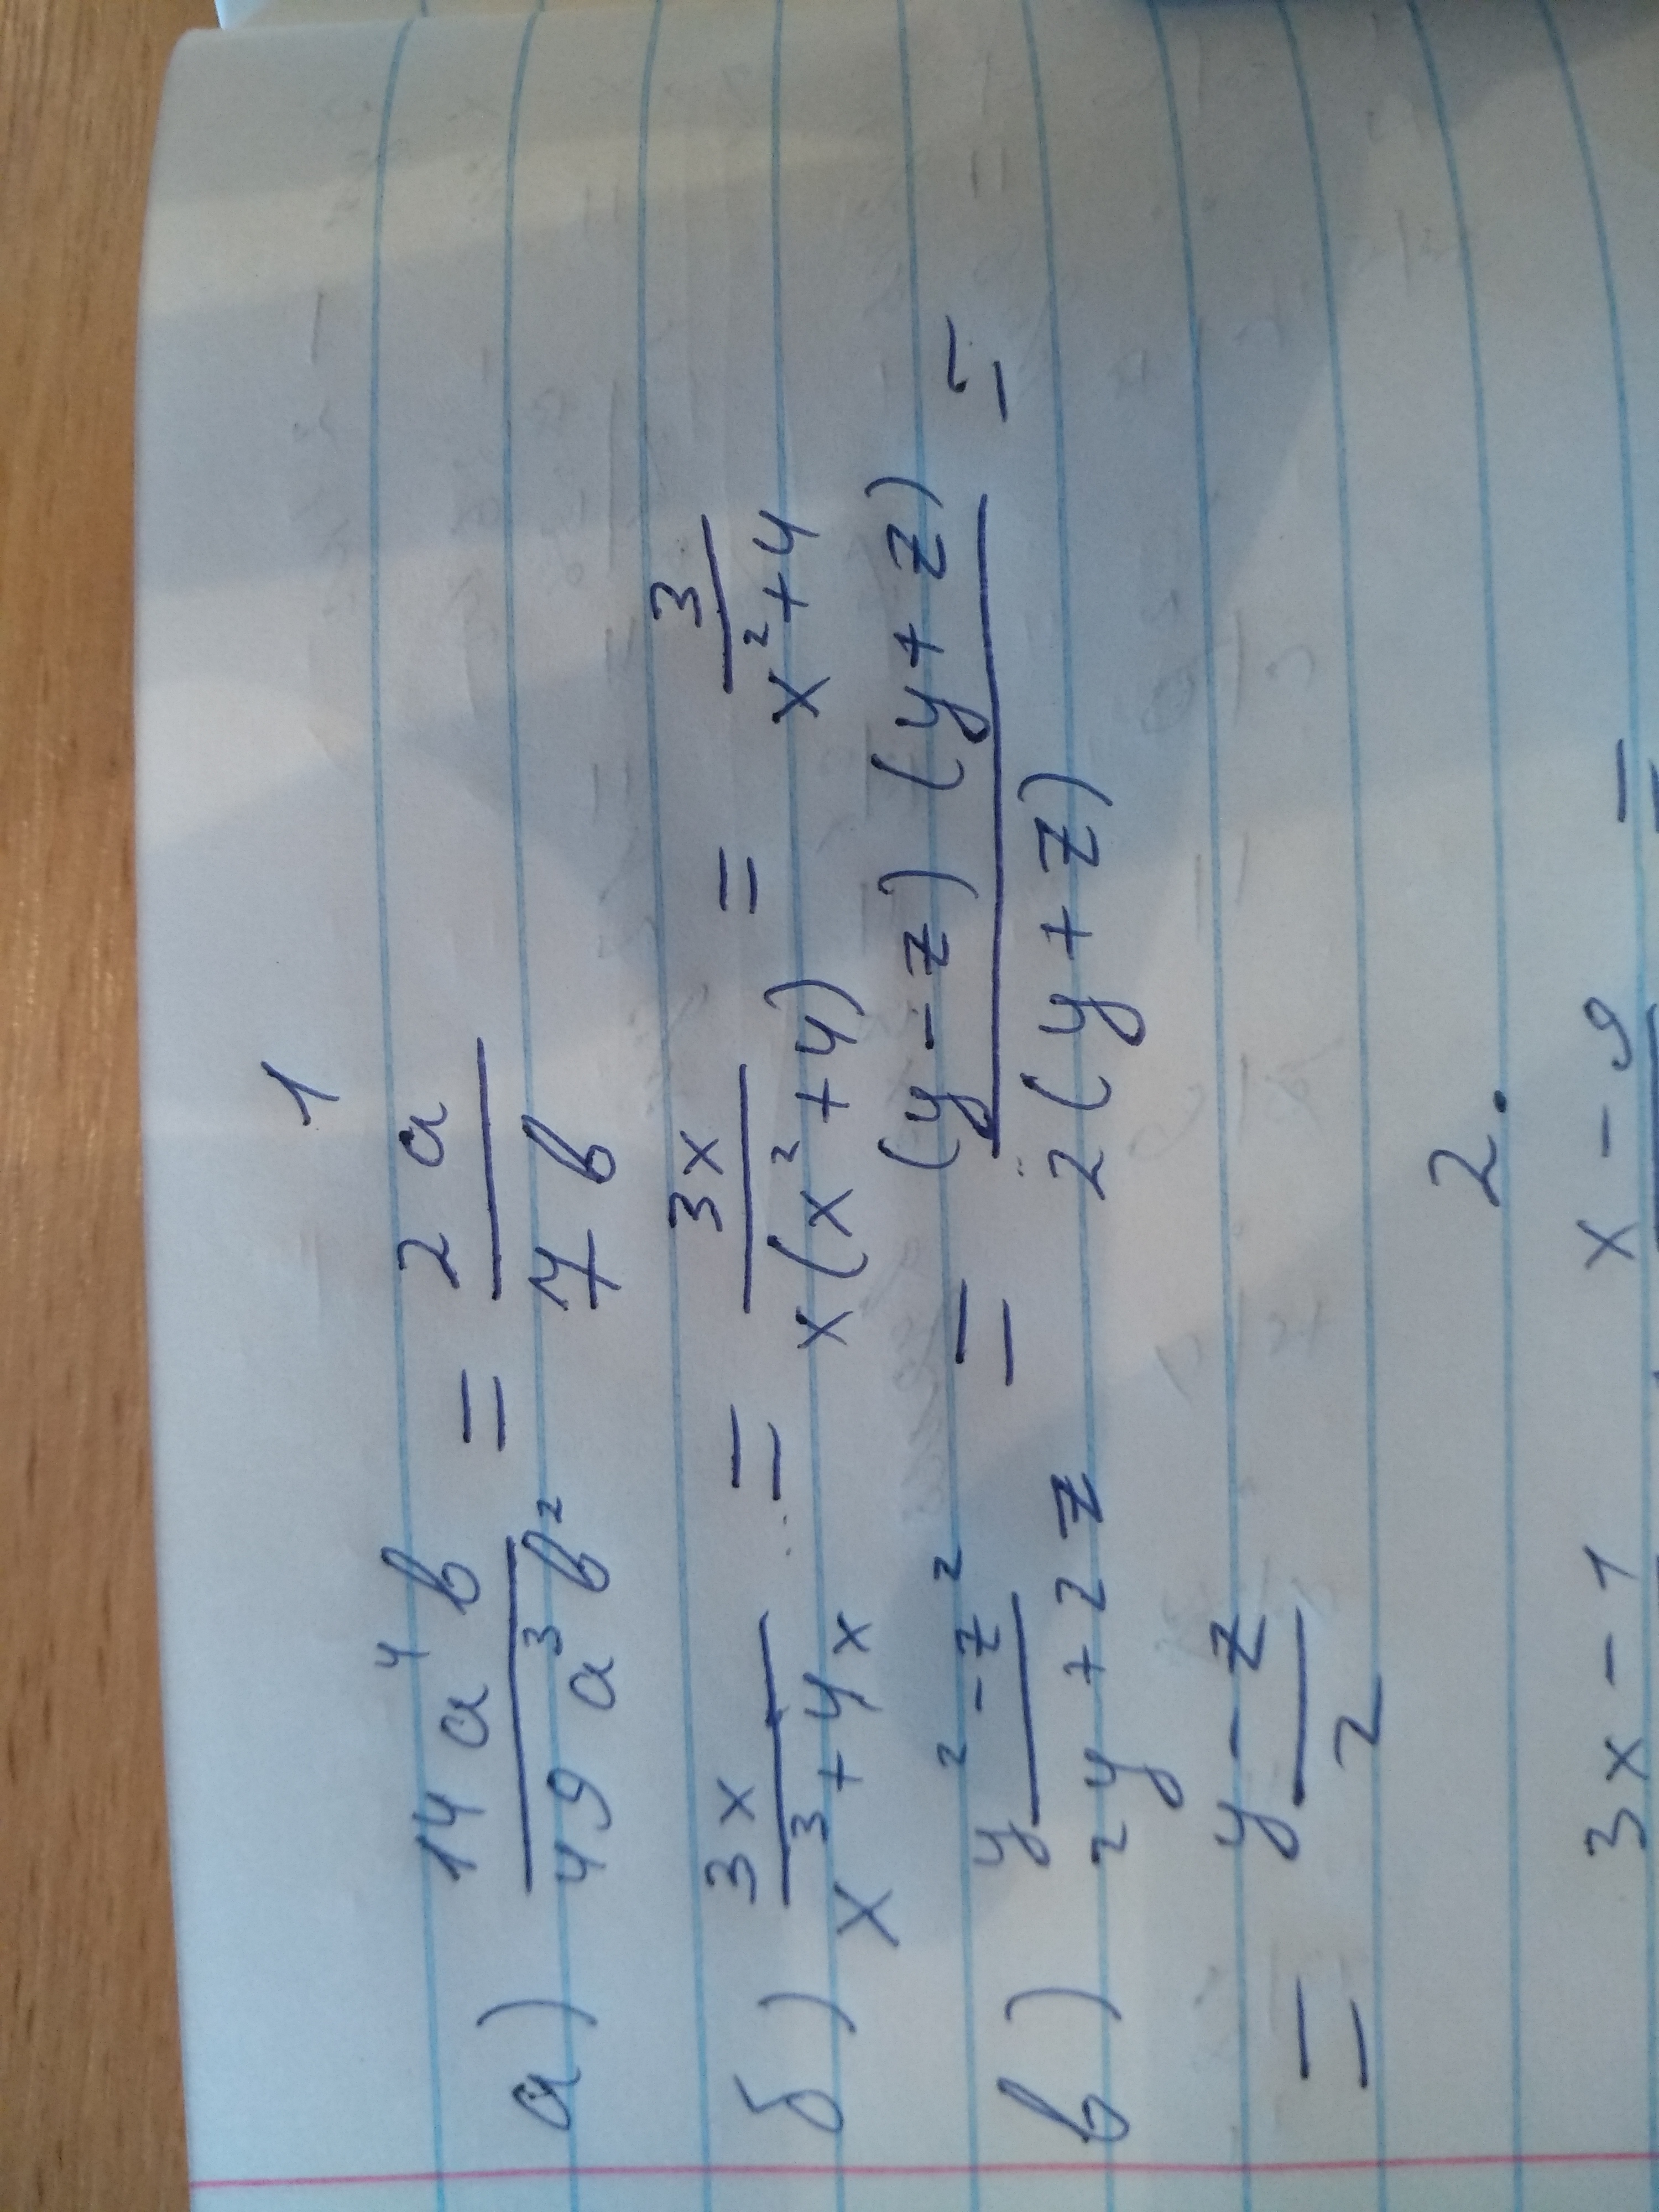 1
а) 14a⁴b / 49a³b² = 2a / 7b
б) 3x / x³+4x = 3x / x(x²+4) = 3 / x²+4
в) y²-z² / 2y+2z = (y-z)(y+z) / 2(y+z) =
= y-z / 2
2.
3x-1 x-9 =